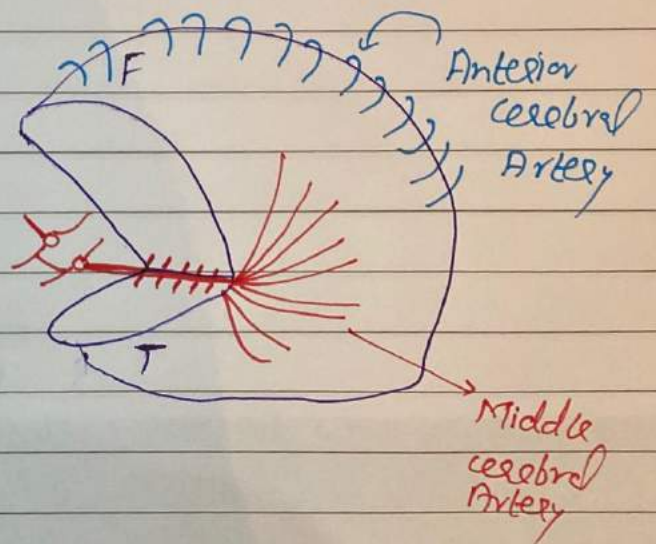 F
Anterior
cerebral
Artery
T
Middle
cerebral
Artery